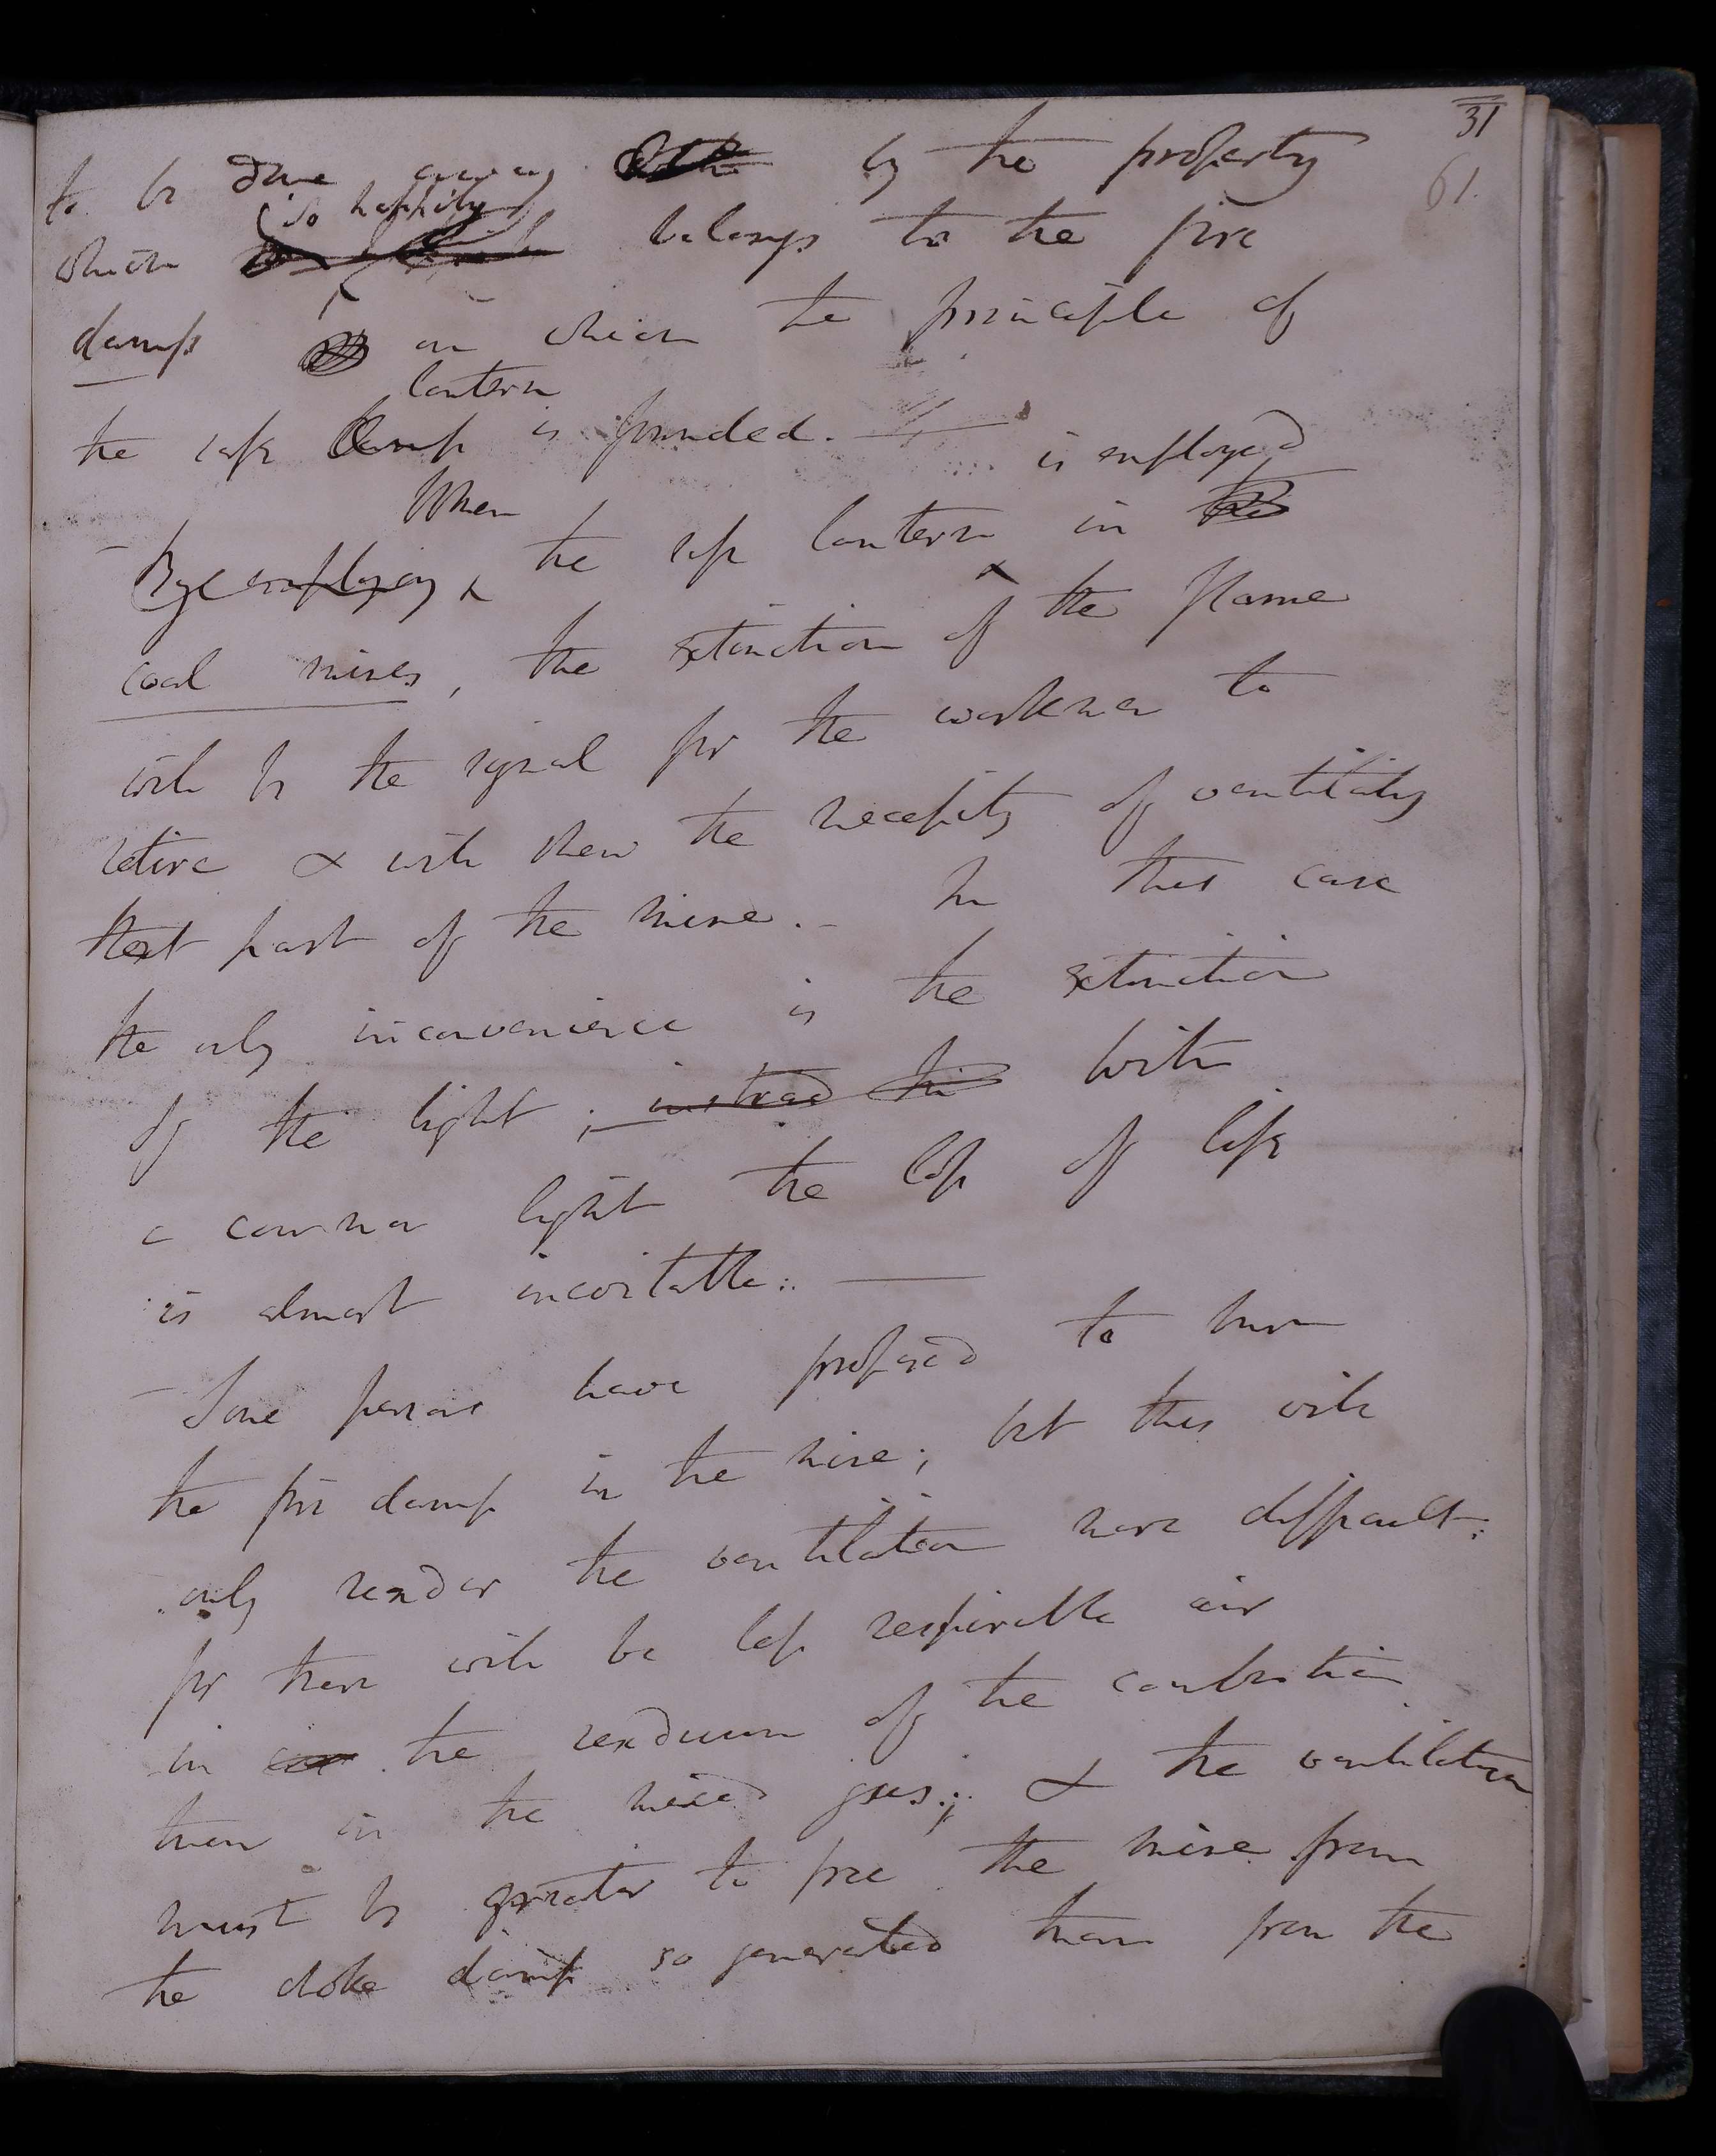 31
61.
to be done away by the property
(so happily)
which belongs to the fire
damps on which the principle of
lantern
the safe lamp is founded. —
is employed
When
By employing the safe lantern in the
coal mines, the extinction of the flame
will be the signal for the workmen to
retire & will shew the necessity of ventilating
that part of the mine. - In this case
the only inconvenience is the extinction
of the light; instead this with
a common light the loss of life
is almost inevitable. —
Some persons have proposed to burn
the fire damp in the mine; but this will
only render the ventilation more difficult;
for there will be less respirable air
in the residuum of the combustion
than in the mixed gases; & the ventilation
must be greater to free the mine from
the choke damp so generated than from the